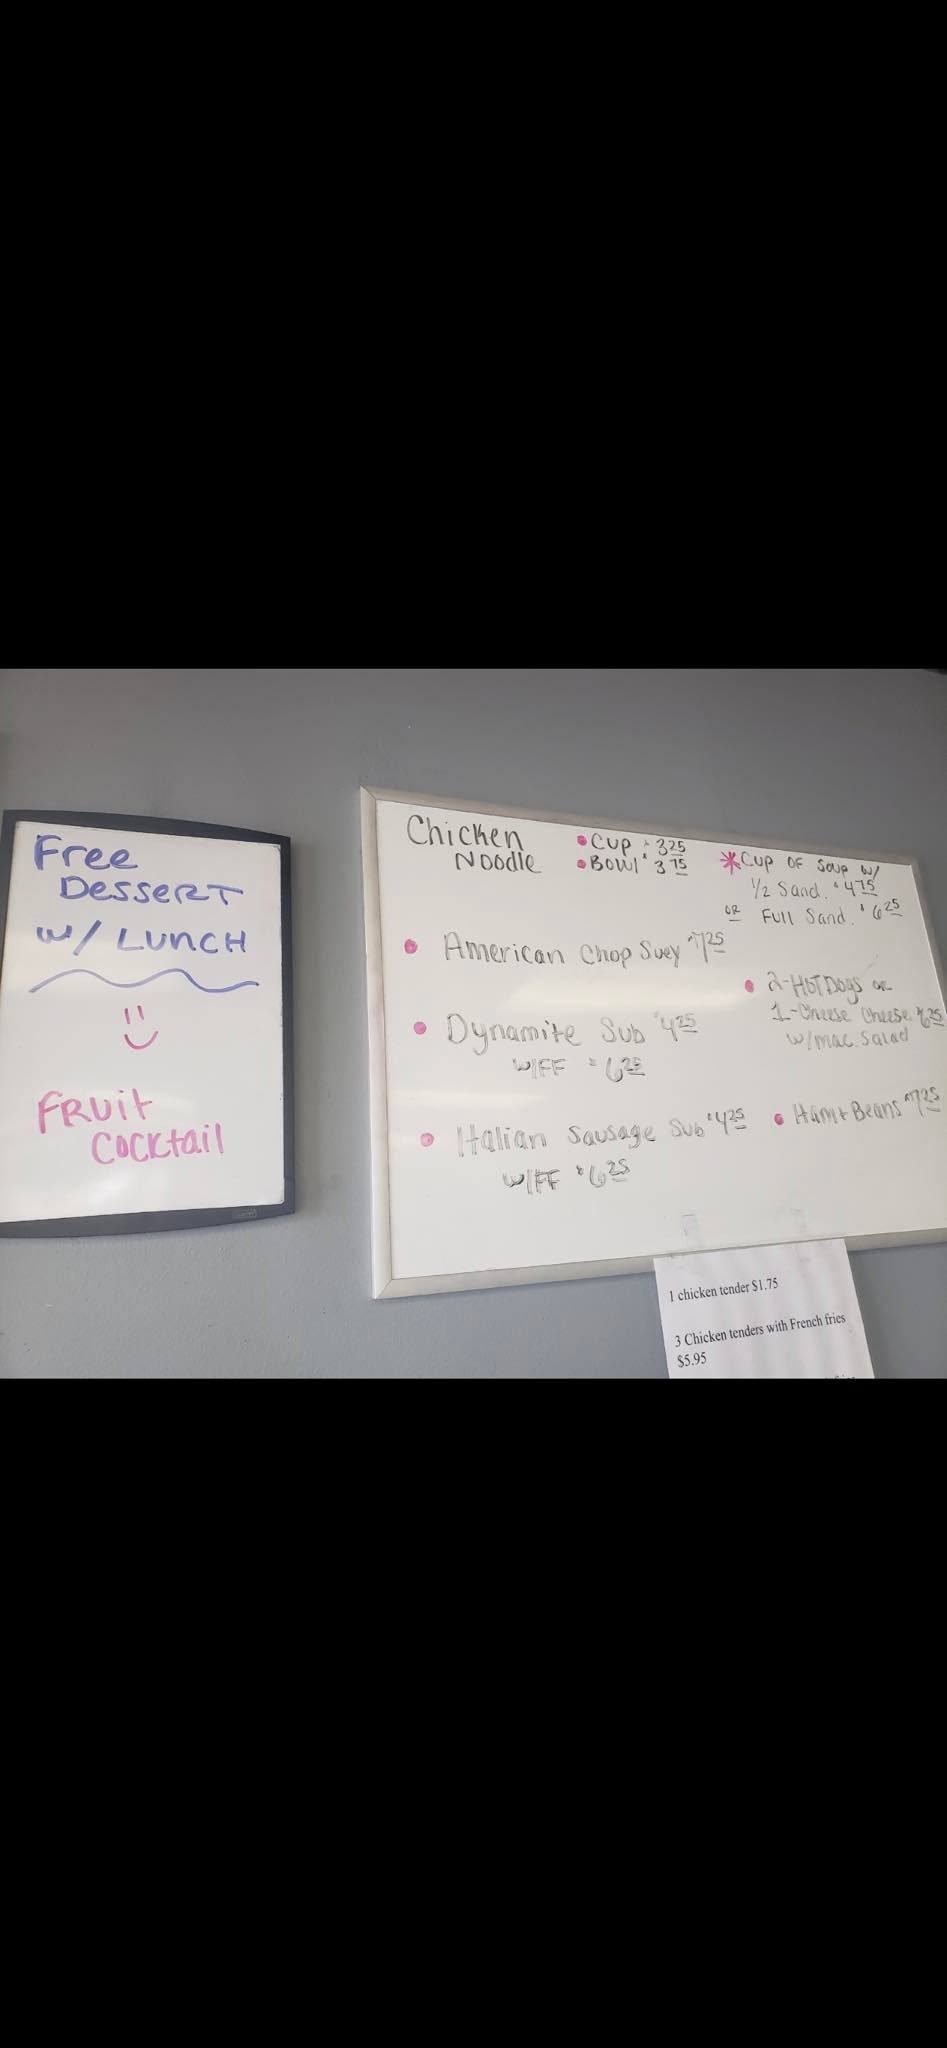 Free
Dessert
w/ Lunch
Fruit
Cocktail
Chicken
Noodle
• Cup $3.25
• Bowl $3.75
* Cup of Soup w/
1/2 Sand. $4.75
or Full Sand. $6.25
• American Chop Suey $7.25
• Dynamite Sub $4.25
w/FF $6.25
• Italian Sausage Sub $4.25
w/FF $6.25
• 2-Hot Dogs or
1-Cheese Cheese $6.25
w/mac. Salad
• Ham + Beans $7.25
1 chicken tender $1.75
3 Chicken tenders with French fries
$5.95